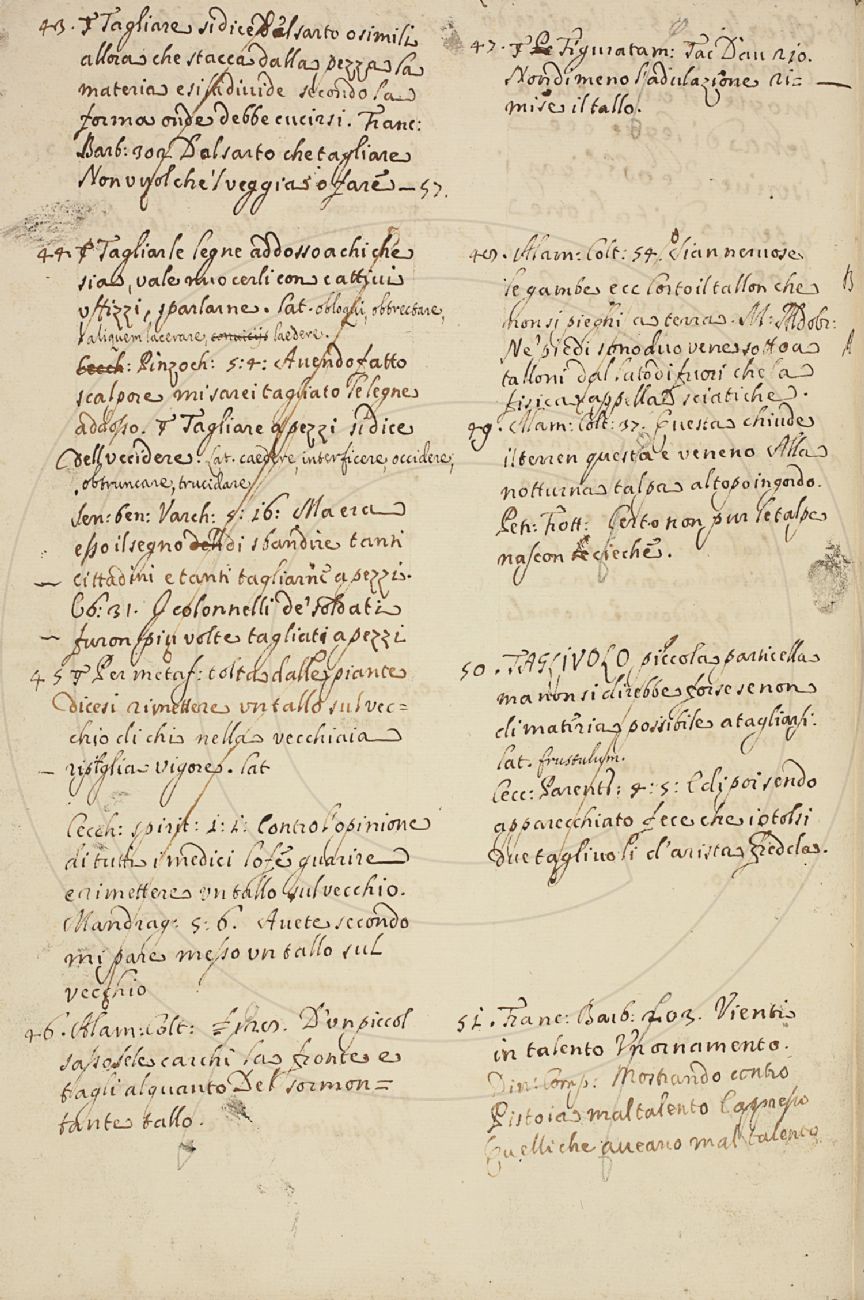 43. ⸿ Tagliare si dice del sarto o simili
allora che stacca dalla pezza la
materia e si divide secondo la
forma onde debbe cucirsi. Franc:
Barb: 302 Dal sarto che tagliare
Non vuol che'l veggia so fare — 57.
44. ⸿ Tagliar le legne addosso a chi che
sia, vale nuocerli con cattivi
uffizzi, sparlarne. lat. obloqui, obtrectare,
aliquem lacerare, convitijs laedere.
Cecch: Pinzoch: 5:4: Avendo fatto
scalpore mi sarei tagliato le legne
addosso. ⸿ Tagliare a pezzi si dice
dell'uccidere. lat. caedere, interficere, occidere,
obtruncare, trucidare
Sen: ben: Varch: 5: 16: Ma era
esso il segno di sbandire tanti
cittadini e tanti tagliarne a pezzi.
C6: 31. I colonnelli de' soldati
furon più volte tagliati a pezzi
45 ⸿ Per metaf: tolta dalle piante
dicesi rimettere un tallo sul vec=
chio di chi nella vecchiaia
ripiglia vigore. lat
Cecch: spirit: 1: 1: Contro l'opinione
di tutti i medici lo fe guarire
e rimettere un tallo sul vecchio.
Mandrag: 5: 6. Avete secondo
mi pare messo un tallo sul
vecchio
46. Alam: Colt: D'un piccol
sasso sele carchi la fronte e
tagli alquanto Del sormon=
tante tallo.
47. ⸿ Figuratam: Tac Dav
Nondimeno l'adulazione ri=
mise il tallo.
48. Alam: Colt: 54. Sian nervose
le gambe ecc Corto il tallon che
non si pieghi a terra. M: Aldobr:
Ne' piedi sono duo vene sotto a
talloni dal lato di fuori che la
fisica appella sciatiche.
49. Alam: Colt: 37. Questa chiude
il terren questa è veneno Alla
notturna talpa al topo ingordo.
Petr: Frott: Certo non pur le talpe
nascon cieche.
50. TAGLIVOLO piccola particella
ma non si direbbe forse se non
di materia possibile a tagliarsi.
lat. frustulum.
Cecc: Parenti: 4: 5: E dipoi sendo
apparecchiato fece che io tolsi
due tagliuoli d'arista fredda.
51. Franc: Barb: 203. Vienti
in talento Un ornamento.
Din: Comp: Mostrando contro
Pistoia maltalento Cappresso
Quelli che aveano mal talento
B
A